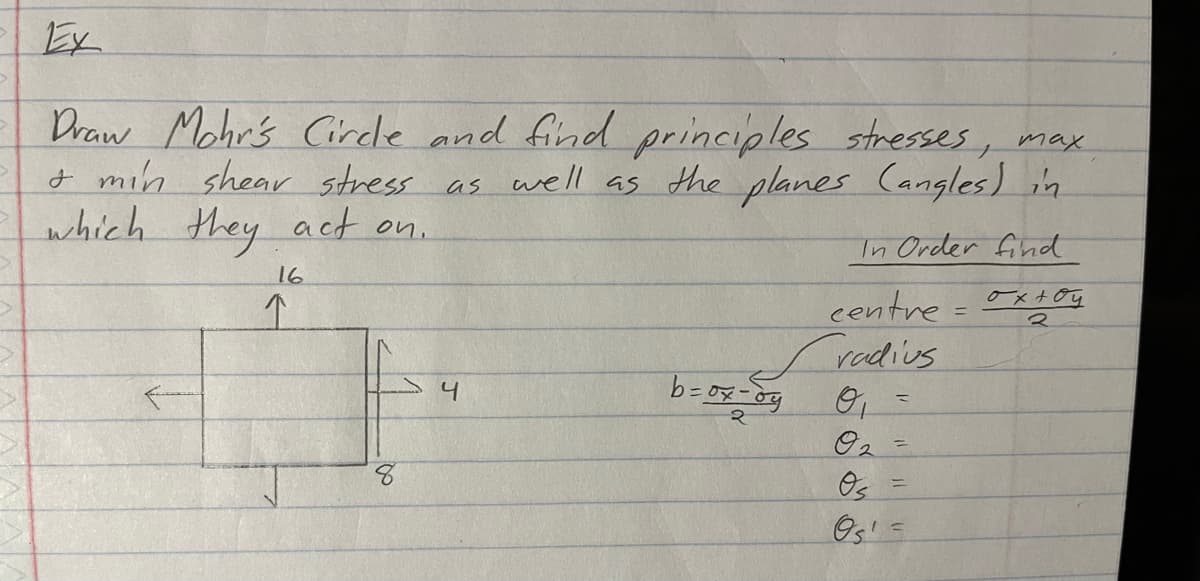 Ex
Draw Mohr's Circle and find principles stresses, max
& min shear stress as well as the planes (angles) in
which they act on.
In Order find
16
centre = σx + σy / 2
radius
4
b = σx - σy / 2
θ1 =
θ2 =
8
θs =
θs' =